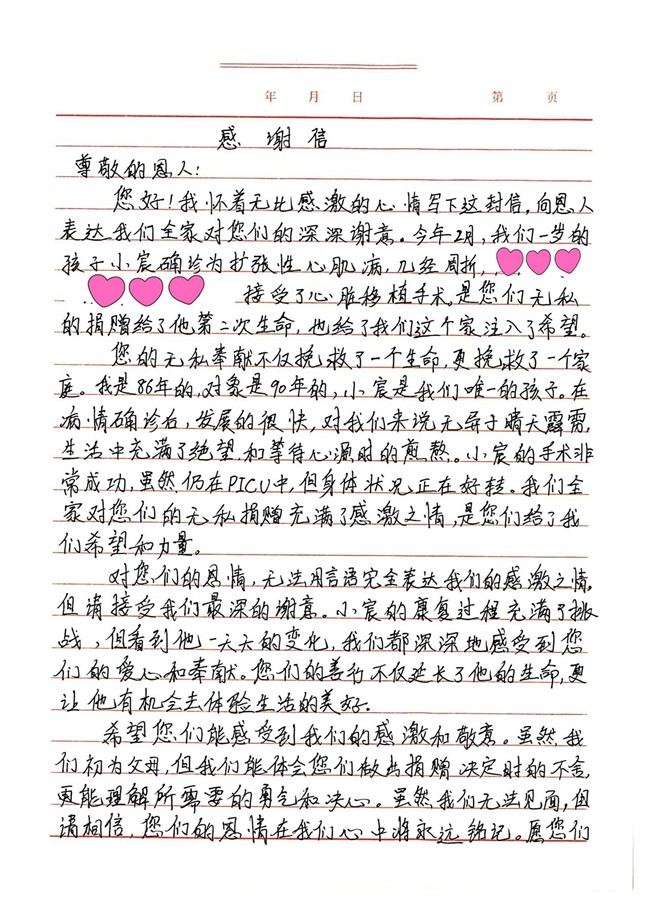 年 月 日 第 页
感谢信
尊敬的恩人：
您好！我怀着无比感激的心情写下这封信，向恩人
表达我们全家对您们的深深谢意。今年2月，我们一岁的
孩子小宸确诊为扩张性心肌病，几经周折，
接受了心脏移植手术，是您们无私
的捐赠给了他第二次生命，也给了我们这个家注入了希望。
您的无私奉献不仅挽救了一个生命，更挽救了一个家
庭。我是86年的，对象是90年的，小宸是我们唯一的孩子。在
病情确诊后，发展的很快，对我们来说无异于晴天霹雳，
生活中充满了绝望和等待心源时的煎熬。小宸的手术非
常成功，虽然仍在PICU中，但身体状况正在好转。我们全
家对您们的无私捐赠充满了感激之情，是您们给了我
们希望和力量。
对您们的恩情，无法用言语完全表达我们的感激之情，
但请接受我们最深的谢意。小宸的康复过程充满了挑
战，但看到他一天天的变化，我们都深深地感受到您
们的爱心和奉献。您们的善行不仅延长了他的生命，更
让他有机会去体验生活的美好。
希望您们能感受到我们的感激和敬意。虽然我
们初为父母，但我们能体会您们做出捐赠决定时的不舍，
更能理解所需要的勇气和决心。虽然我们无法见面，但
请相信，您们的恩情在我们心中将永远铭记。愿您们